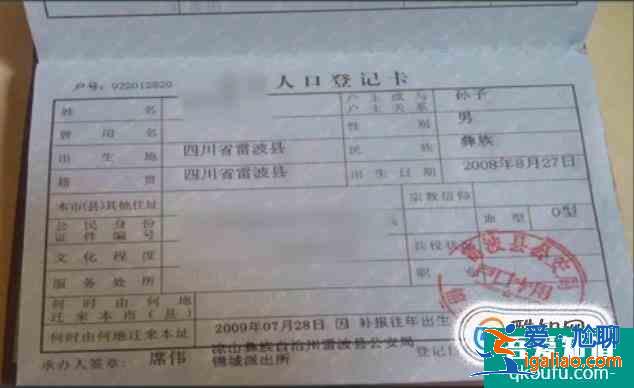 户号: 922012820 人口登记卡
姓名 户主或与户主关系 孙子
曾用名 性别 男
出生地 四川省雷波县 民族 彝族
籍贯 四川省雷波县 出生日期 2008年8月27日
本市(县)其他住址 宗教信仰
公民身份证件编号 血型 O型
文化程度 兵役状况
服务处所 职
何时由何地迁来本市(县)
何时由何地迁来本址 2009年07月28日 因 补报往年出生
凉山彝族自治州雷波县公安局
锦城派出所
承办人签章: 席伟 登记
雷波县公安局
户口专用
爱尬聊